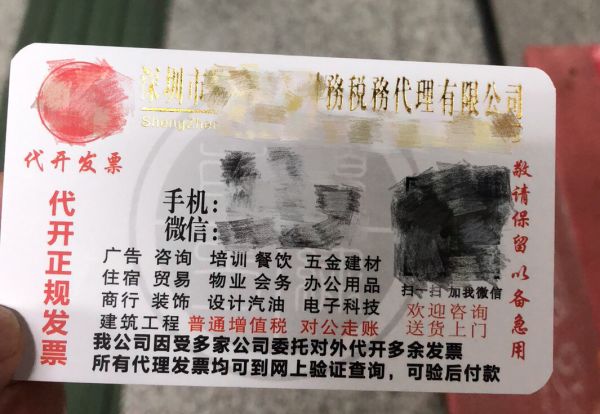 深圳市 財務税務代理有限公司
Shengzhen
代开发票
代开正规发票
手机:
微信:
广告 咨询 培训 餐饮 五金建材
住宿 贸易 物业 会务 办公用品
商行 装饰 设计汽油 电子科技
建筑工程 普通增值税 对公走账
我公司因受多家公司委托对外代开多余发票
所有代理发票均可到网上验证查询，可验后付款
扫一扫 加我微信
欢迎咨询
送货上门
敬请保留 以备急用